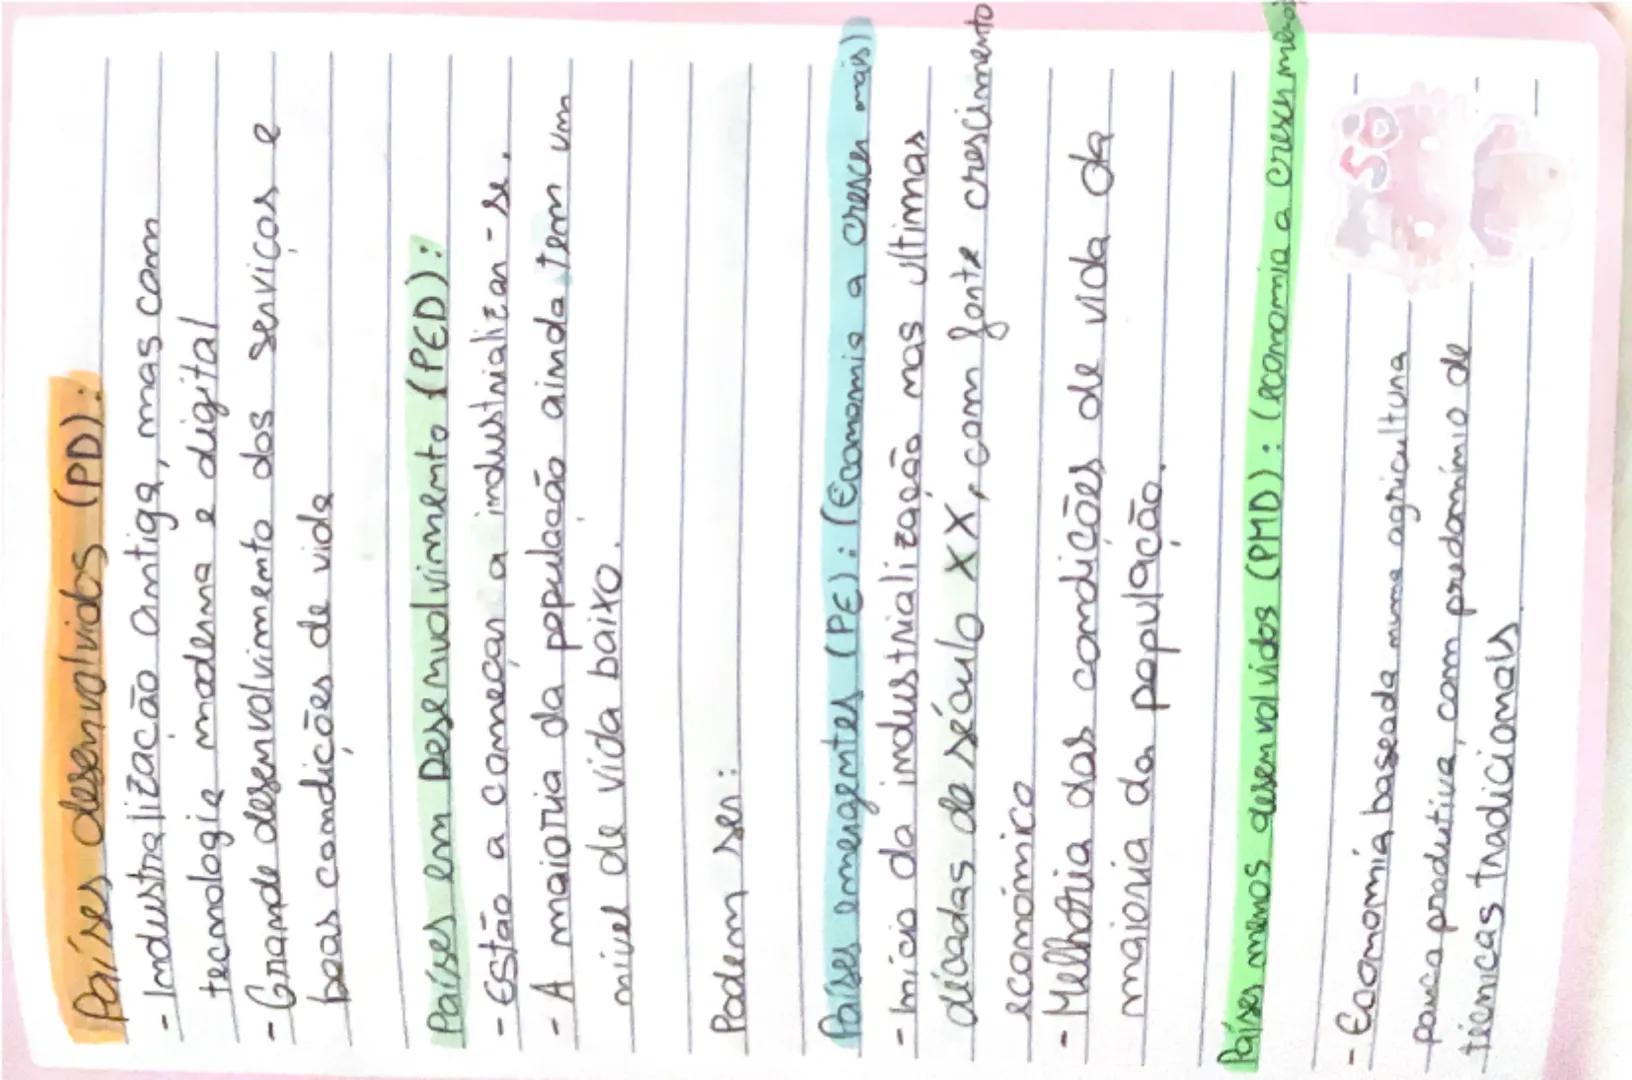 Países desenvolvidos (PD):
- Industrialização antiga, mas com
tecnologia moderna e digital
- Grande desenvolvimento dos serviços e
boas condições de vida
Países em Desenvolvimento (PED):
- Estão a começar a industrializar-se.
- A maioria da população ainda tem um
nível de vida baixo.
Podem ser:
Países emergentes (PE): (Economia a crescer mais)
- Início da industrialização nas ultimas
décadas do século XX, com fonte crescimento
económico
- Melhoria das condições de vida da
maioria da população.
Países menos desenvolvidos (PMD): (economia a crescer menos)
- Economia baseada numa agricultura
pouca produtiva, com predomínio de
técnicas tradicionais